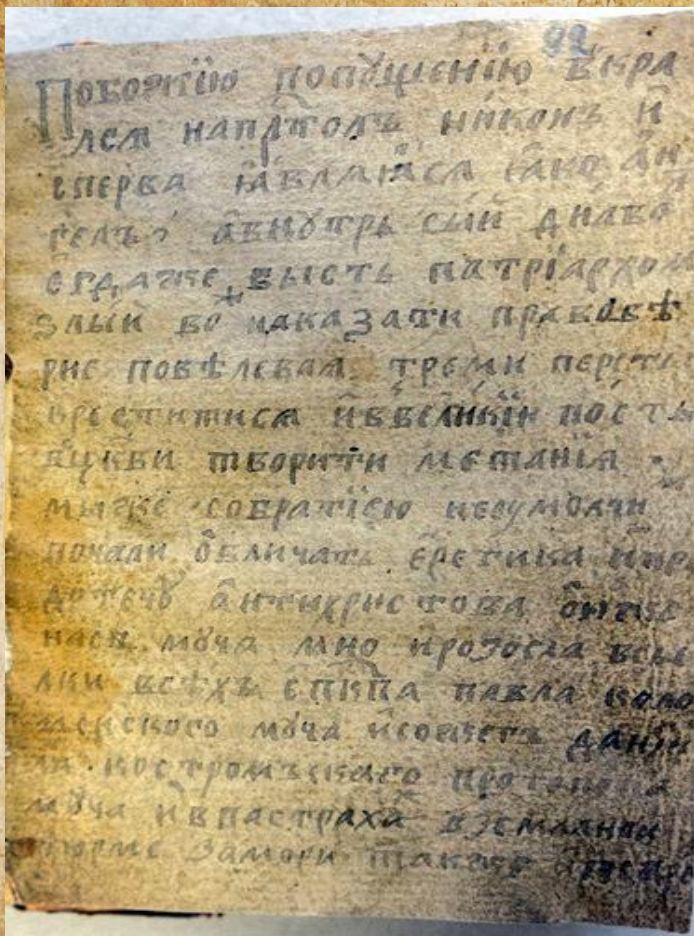 92
По божїю попущенїю вкра
лсѧ на прⷭ҇толъ никонъ и҆
сперва ꙗ҆влѧꙗ҆сѧ ꙗ҆ко а҆н
гелъ, а҆внутрь сый дїѧво
є҆гда же бысть патрїархом
злый бо наказати правовѣ
рне повѣлеваѧ треми персты
креститисѧ и҆ввеликїи постъ
вцркви творити метанїѧ
мы же собратїею неумолчи
почали ѡ҆бличать є҆ретика и҆пре
дотечу а҆нтихристова ѻ҆нже
насъ муча мно и҆розосла
всѣхъ є҆пкпа павла коло
менского муча и҆сожже данїи
ла костромъскаго протопопа
муча и҆впастраха вземлѧной
тюрме замори такоже